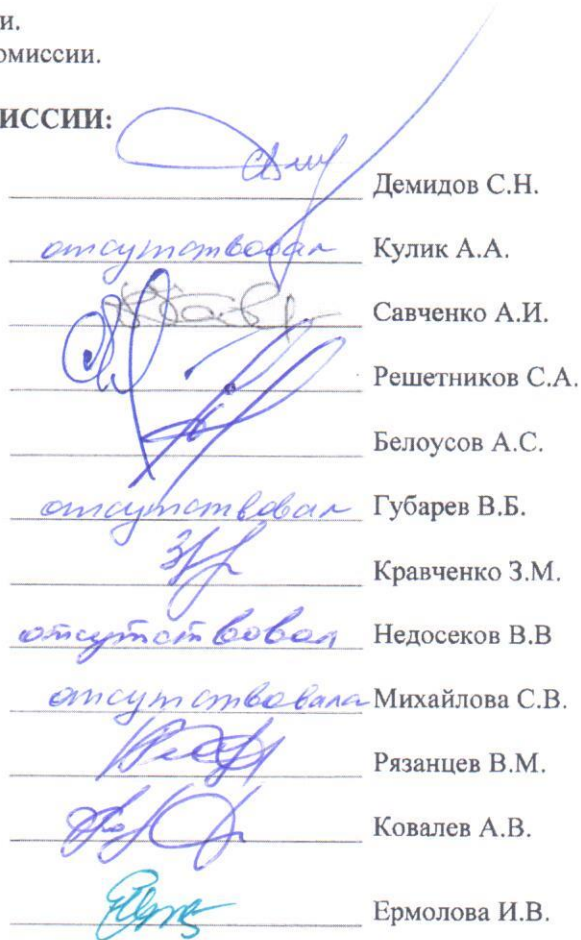 и.
омиссии.
ИССИИ:
Демидов С.Н.
отсутствовал Кулик А.А.
Савченко А.И.
Решетников С.А.
Белоусов А.С.
отсутствовал Губарев В.Б.
Кравченко З.М.
отсутствовал Недосеков В.В
отсутствовала Михайлова С.В.
Рязанцев В.М.
Ковалев А.В.
Ермолова И.В.